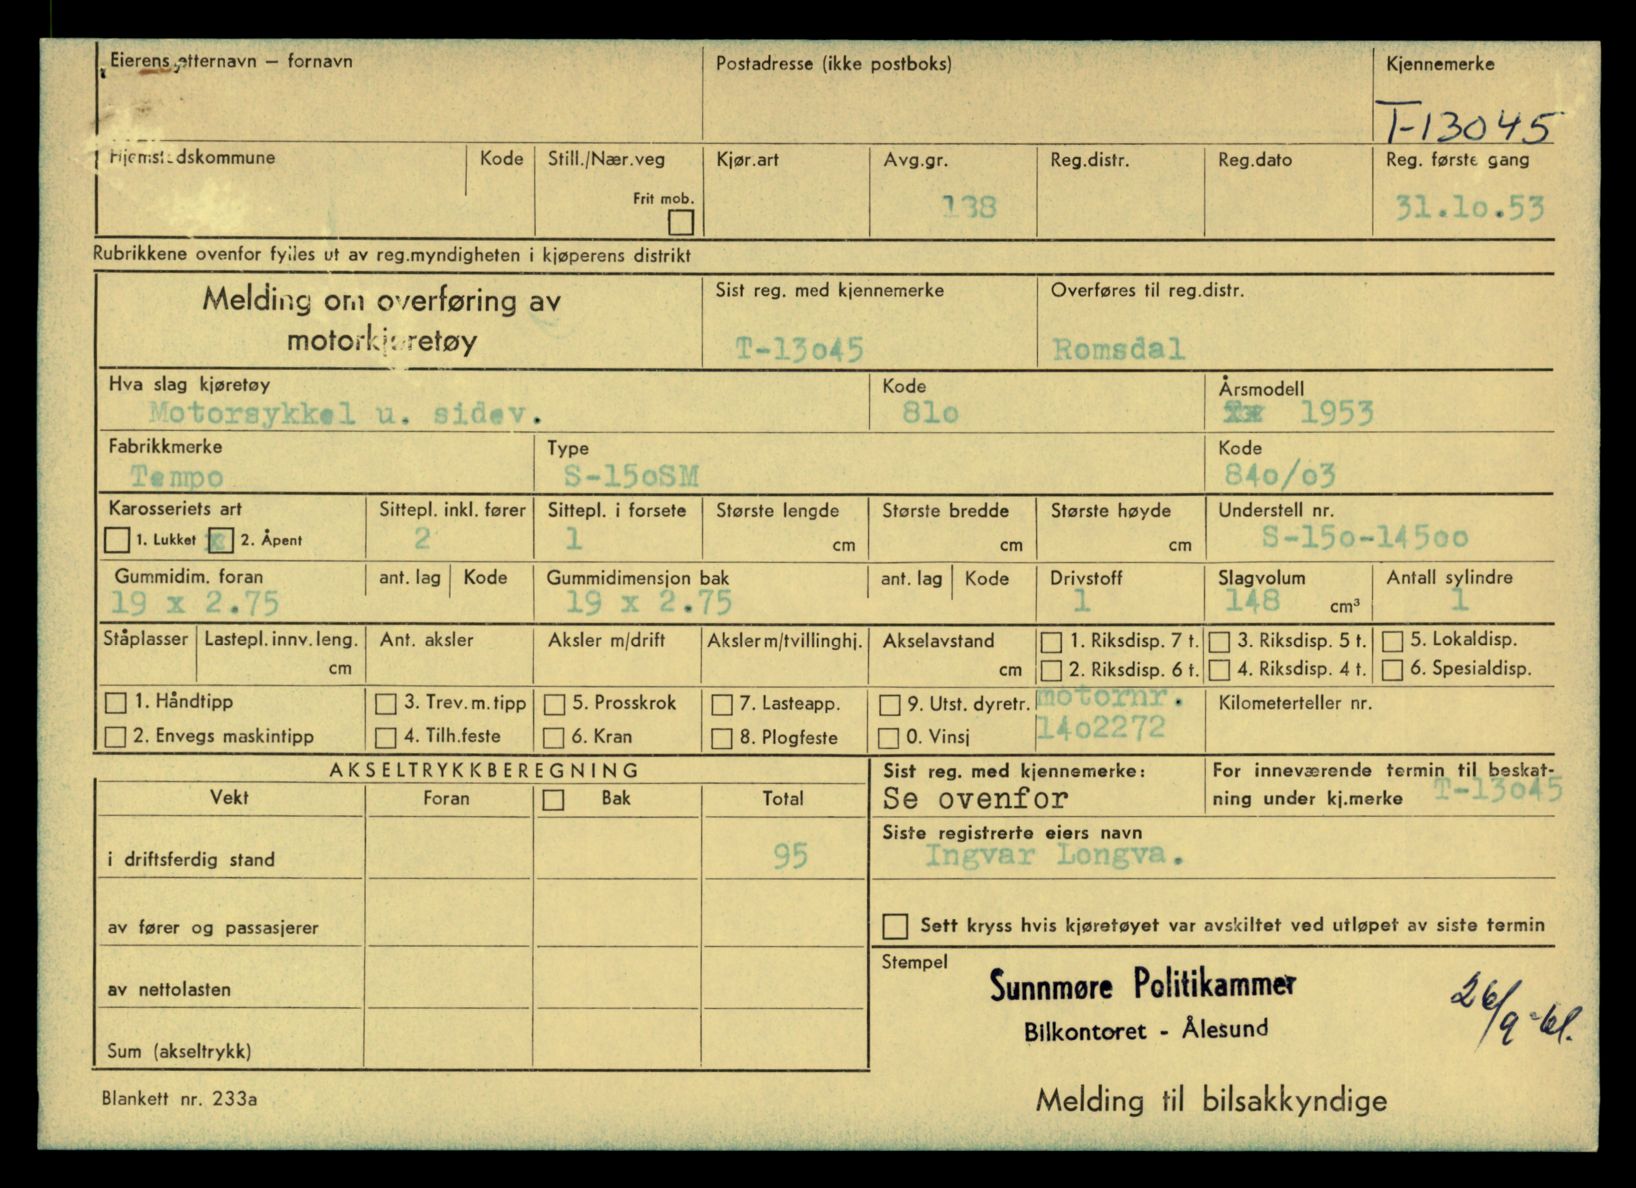 Eierens etternavn — fornavn Postadresse (ikke postboks) Kjennemerke
T-13045
Hjemstedskommune Kode Still./Nær.veg Kjør.art Avg.gr. Reg.distr. Reg.dato Reg. første gang
Frit mob. 138 31.1o.53
Rubrikkene ovenfor fylles ut av reg.myndigheten i kjøperens distrikt
Melding om overføring av motorkjøretøy
Sist reg. med kjennemerke Overføres til reg.distr.
T-13o45 Romsdal
Hva slag kjøretøy Kode Årsmodell
Motorsykkel u. sidev. 81o 1953
Fabrikkmerke Type Kode
Tempo S-15oSM 84o/o3
Karosseriets art Sittepl. inkl. fører Sittepl. i forsete Største lengde Største bredde Største høyde Understell nr.
1. Lukket x 2. Åpent 2 1 cm cm cm S-15o-145oo
Gummidim. foran ant. lag Kode Gummidimensjon bak ant. lag Kode Drivstoff Slagvolum Antall sylindre
19 x 2.75 19 x 2.75 1 148 cm³ 1
Ståplasser Lastepl. innv. leng. Ant. aksler Aksler m/drift Aksler m/tvillinghj. Akselavstand 1. Riksdisp. 7 t. 3. Riksdisp. 5 t. 5. Lokaldisp.
cm cm 2. Riksdisp. 6 t. 4. Riksdisp. 4 t. 6. Spesialdisp.
1. Håndtipp 3. Trev. m. tipp 5. Prosskrok 7. Lasteapp. 9. Utst. dyretr. motornr. Kilometerteller nr.
2. Envegs maskintipp 4. Tilh.feste 6. Kran 8. Plogfeste 0. Vinsj 14o2272
AKSELTRYKKBEREGNING Sist reg. med kjennemerke: For inneværende termin til beskat-
Vekt Foran Bak Total Se ovenfor ning under kj.merke T-13o45
Siste registrerte eiers navn
i driftsferdig stand 95 Ingvar Longva.
av fører og passasjerer Sett kryss hvis kjøretøyet var avskiltet ved utløpet av siste termin
Stempel
av nettolasten Sunnmøre Politikammer 26/9-61.
Bilkontoret - Ålesund
Sum (akseltrykk)
Blankett nr. 233a Melding til bilsakkyndige